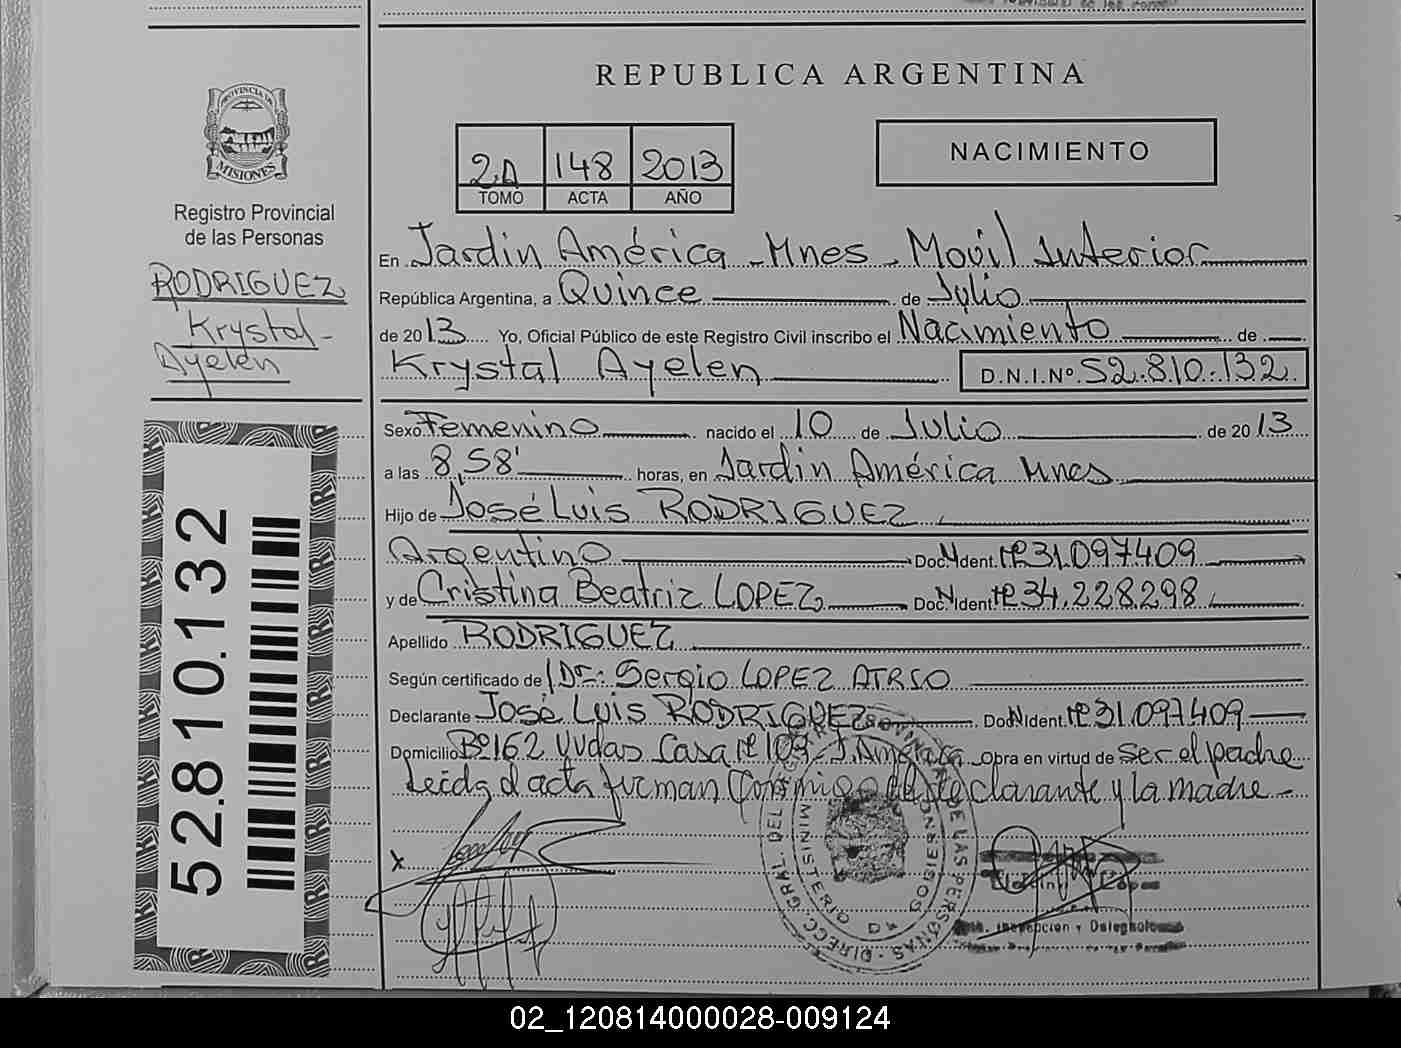 REPUBLICA ARGENTINA
PROVINCIA DE
MISIONES
Registro Provincial
de las Personas
RODRIGUEZ
Krystal-
Ayelen
52.810.132
2.A 148 2013
TOMO ACTA AÑO
NACIMIENTO
En Jardin América - Mnes - Movil Interior
República Argentina, a Quince de Julio
de 2013 Yo, Oficial Público de este Registro Civil inscribo el Nacimiento de
Krystal Ayelen D.N.I.Nº 52.810.132
Sexo Femenino nacido el 10 de Julio de 2013
a las 8,58' horas, en Jardin América Mnes
Hijo de José Luis RODRIGUEZ
Argentino Doc. Ident. Nº 31.097409
y de Cristina Beatriz LOPEZ Doc. Ident. Nº 34.228.298
Apellido RODRIGUEZ
Según certificado de Dr: Sergio LOPEZ ATRIO
Declarante José Luis RODRIGUEZ Doc. Ident. Nº 31.097409
Domicilio Bº 162 Vvdas Casa Nº 109 - J. América Obra en virtud de ser el padre
Leida el acta firman conmigo el declarante y la madre -
x
DIRECC. GRAL. DEL REGISTRO PROVINCIAL DE LAS PERSONAS
MINISTERIO DE GOBIERNO
02_120814000028-009124